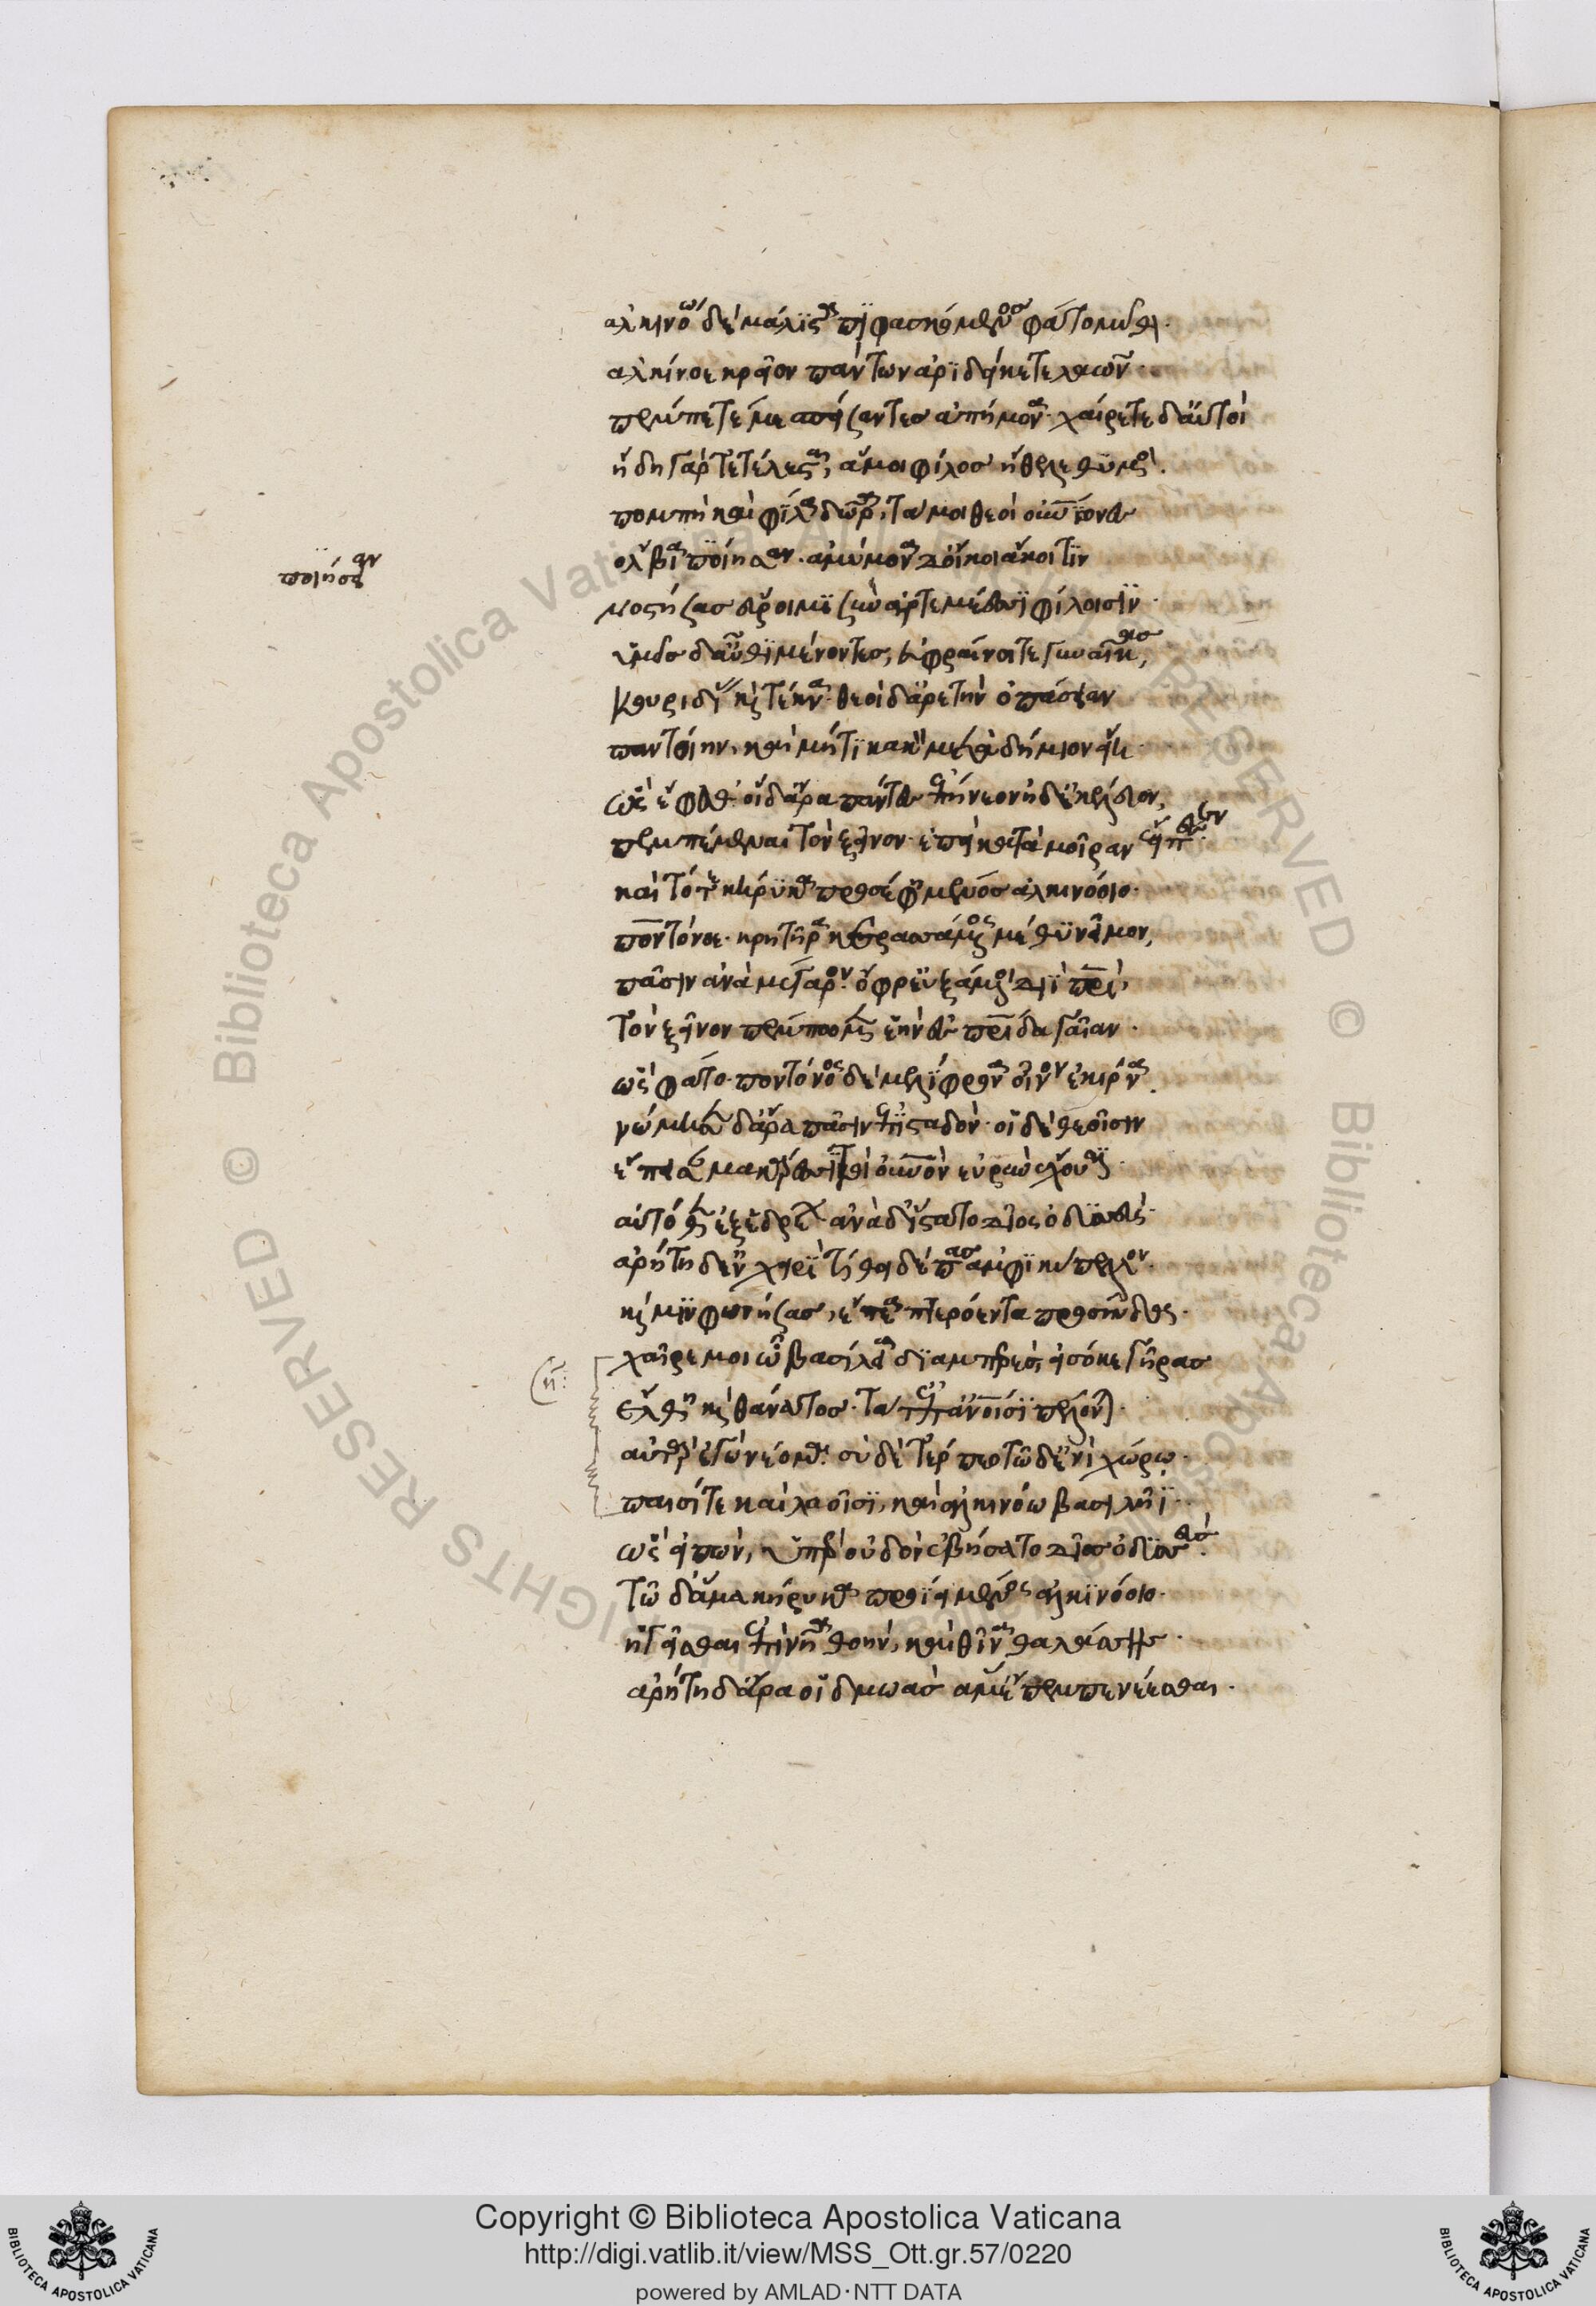 ἀλκινόω δὲ μάλιστα πιφασκόμενος φάτο μῦθον.
ἀλκίνοε κρεῖον πάντων ἀριδείκετε λαῶν.
πέμπετέ με σπείσαντες ἀπήμονα. χαίρετε δ' αὐτοί
ἤδη γὰρ τετέλεσται, ἅ μοι φίλος ἤθελε θυμός.
πομπὴ καὶ φίλα δῶρα, τά μοι θεοὶ οὐρανίωνες
ὄλβια ποίησαν. ἀμύμονα δ' οἴκοι ἄκοιτιν
ποιήσειαν
νοστήσας εὕροιμι σὺν ἀρτεμέεσσι φίλοισιν.
ὑμεῖς δ' αὖθι μένοντες, εὐφραίνοιτε γυναῖκας,
κουριδίας καὶ τέκνα. θεοὶ δ' ἀρετὴν ὀπάσειαν
παντοίην, καὶ μή τι κακὸν μεταδήμιον εἴη.
ὣς ἔφαθ' οἱ δ' ἄρα πάντες ἐπήνεον ἠδ' ἐκέλευον,
πεμπέμεναι τὸν ξεῖνον. ἐπεὶ κατὰ μοῖραν ἔειπεν.
καὶ τότε κήρυκα προσέφη μένος ἀλκινόοιο.
ποντόνοε. κρητῆρα κερασσάμενος μέθυ νεῖμον,
πᾶσιν ἀνὰ μέγαρον. ὄφρ' εὐξάμενοι διὶ πατρί,
τὸν ξεῖνον πέμπωμεν ἑὴν ἐς πατρίδα γαῖαν.
ὣς φάτο. ποντόνοος δὲ μελίφρονα οἶνον ἐκίρνα.
νώμησεν δ' ἄρα πᾶσιν ἐπισταδόν. οἱ δὲ θεοῖσιν
ἔπεισαν μακάρεσσι τοὶ οὐρανὸν εὐρὺν ἔχουσιν.
αὐτόθεν ἐξ ἑδρέων. ἀνὰ δ' ἵστατο δῖος ὀδυσσεύς.
ἀρήτη δ' ἐν χειρὶ τίθει δέπας ἀμφικύπελλον.
καί μιν φωνήσας, ἔπεα πτερόεντα προσηύδα.
χαῖρέ μοι ὦ βασίλεια διαμπερές, εἰσόκε γῆρας
ἔλθῃ καὶ θάνατος. τά τ' ἐπ' ἀνθρώποισι πέλονται.
αὐτὰρ ἐγὼ νέομαι. σὺ δὲ τέρπεο τῷδ' ἐνὶ χώρῳ.
παισί τε καὶ λαοῖσι, καὶ ἀλκινόω βασιλῆϊ.
ὣς εἰπών, ὑπὲρ οὐδὸν ἐβήσατο δῖος ὀδυσσεύς.
τῷ δ' ἅμα κήρυκα προΐει μένος ἀλκινόοιο.
ἡγεῖσθαι ἐπὶ νῆα θοήν, καὶ θῖνα θαλάσσης.
ἀρήτη δ' ἄρα οἱ δμωὰς ἅμ' ἔπεμπε νέεσθαι.